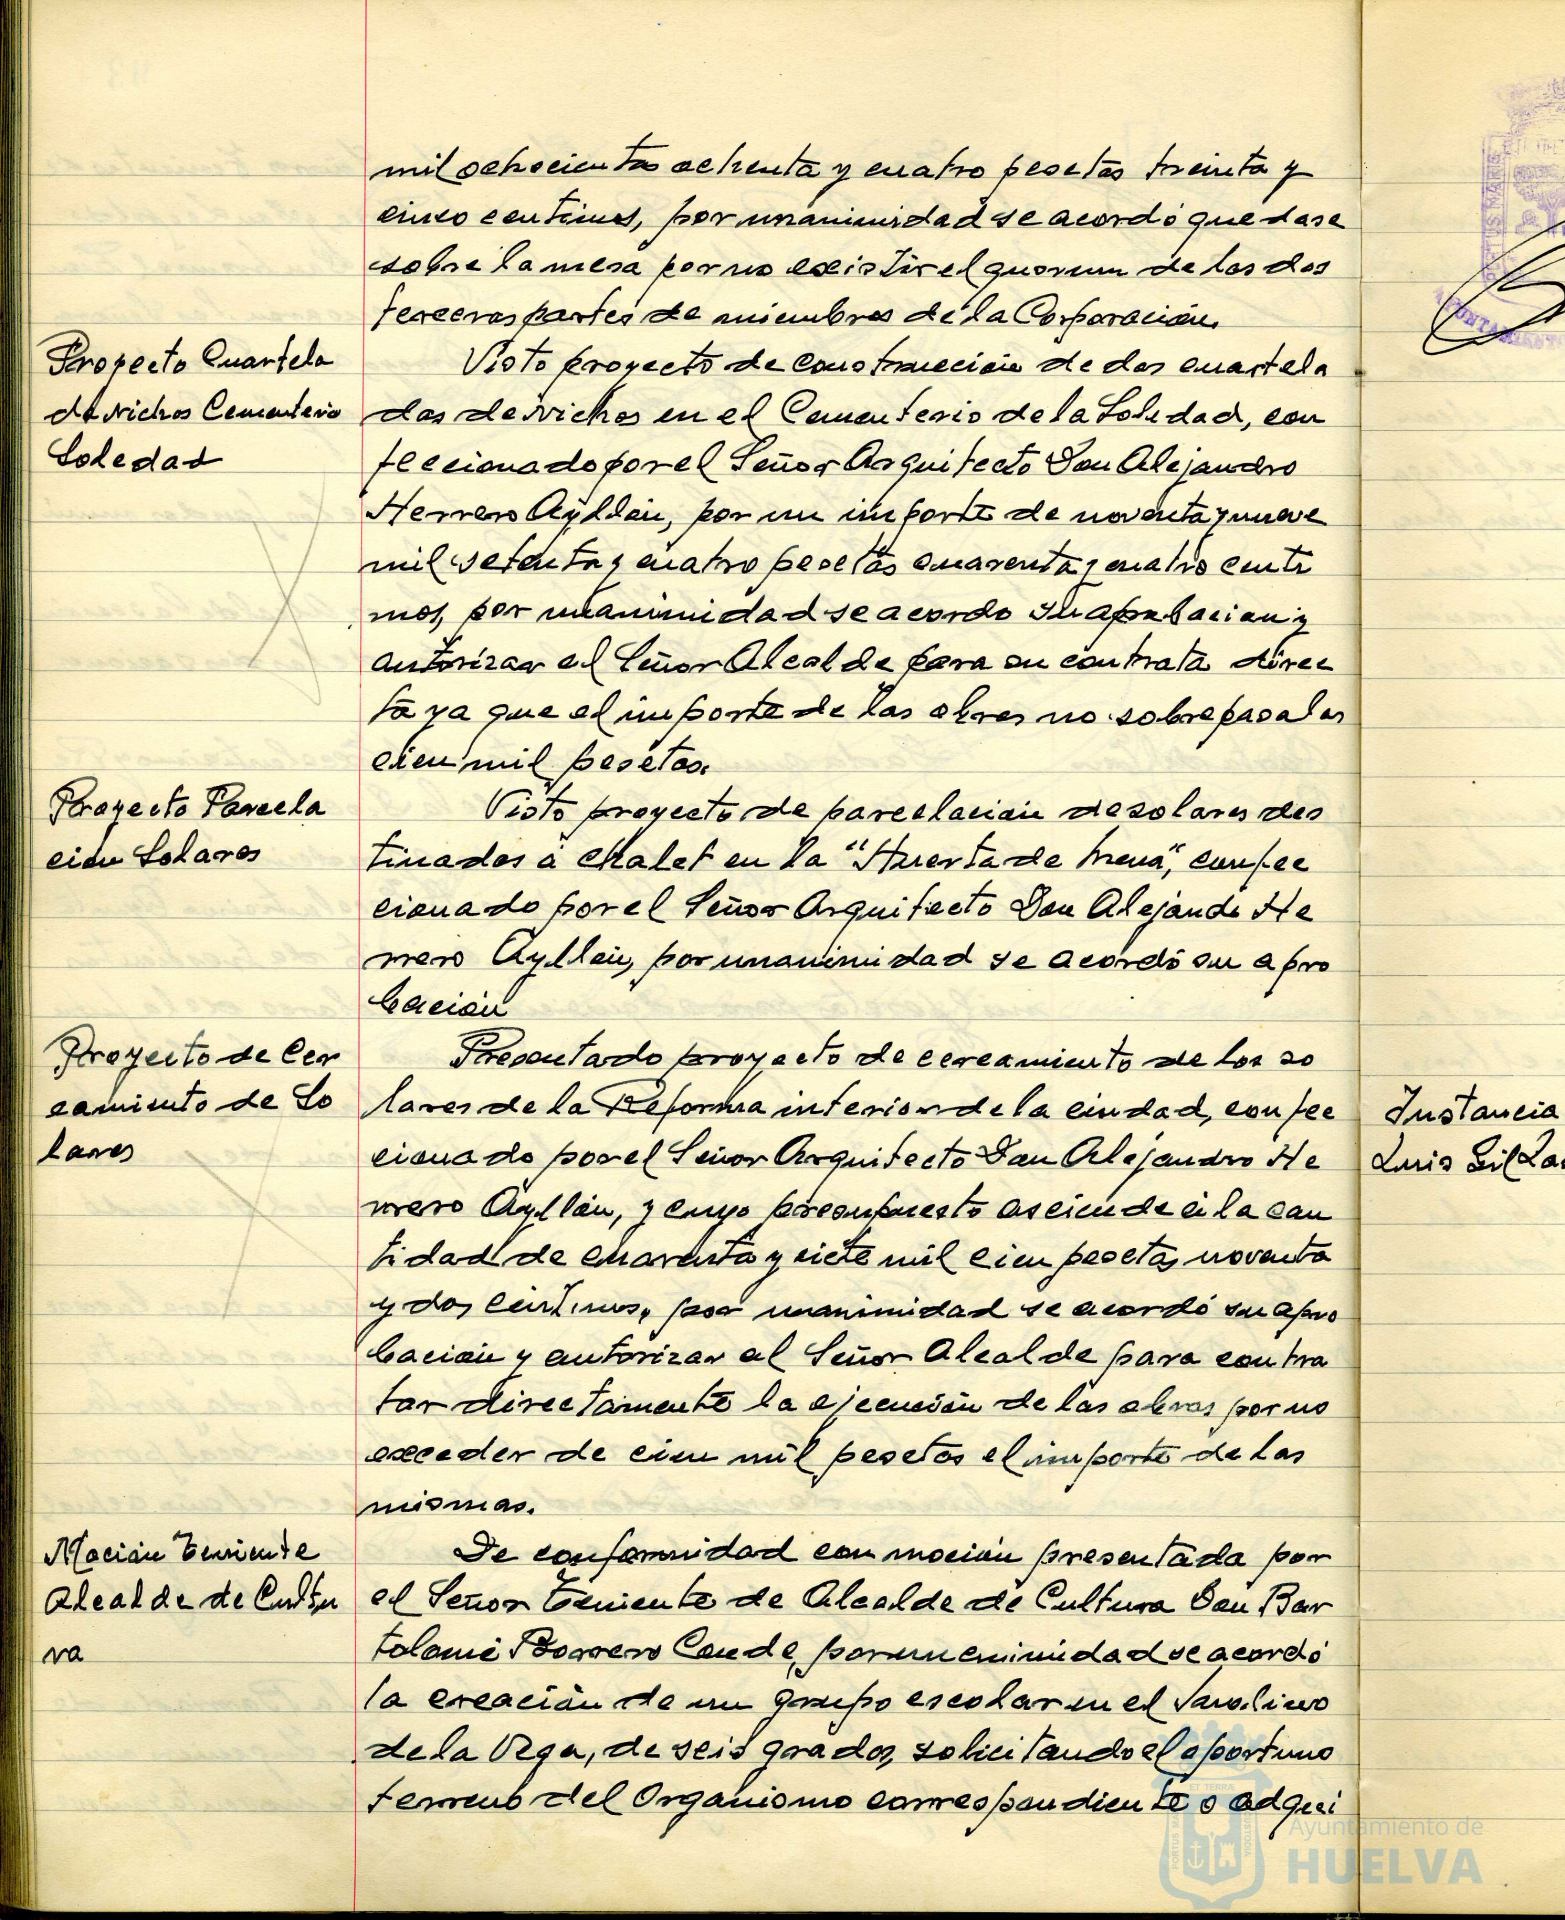 mil ochocientas ochenta y cuatro pesetas treinta y
cinco centimos, por unanimidad se acordó quedase
sobre la mesa por no existir el quorum de las dos
terceras partes de miembros de la Corporación.
Proyecto Cuartela
da Nichos Cementerio
Soledad
Visto proyecto de construcción de dos cuartela
das de Nichos en el Cementerio de la Soledad, con
feccionado por el Señor Arquitecto Don Alejandro
Herrero Ayllón, por un importe de noventa y nueve
mil setenta y cuatro pesetas cuarenta y cuatro centi
mos, por unanimidad se acordo su aprobacion y
autorizar al Señor Alcalde para su contrata direc
ta ya que el importe de las obras no sobrepasa las
cien mil pesetas.
Proyecto Parcela
ción Solares
Visto proyecto de parcelación de solares des
tinados a chalet en la "Huerta de Mena", confec
cionado por el Señor Arquitecto Don Alejando He
rrero Ayllón, por unanimidad se acordó su apro
bación
Proyecto de Cer
camiento de So
lares
Presentado proyecto de cercamiento de los so
lares de la Reforma interior de la ciudad, confec
cionado por el Señor Arquitecto Don Alejandro He
rrero Ayllón, y cuyo presupuesto asciende a la can
tidad de cuarenta y siete mil cien pesetas noventa
y dos centimos, por unanimidad se acordó su apro
bación y autorizar al Señor Alcalde para contra
tar directamente la ejecución de las obras por no
exceder de cien mil pesetas el importe de las
mismas.
Moción Teniente
Alcalde de Cultu
ra
De conformidad con moción presentada por
el Señor Teniente de Alcalde de Cultura Don Bar
tolomé Borrero Conde, por unanimidad se acordó
la creación de un grupo escolar en el
de la Vega, de seis grados, solicitando el oportuno
terreno del Organismo correspondiente o adqui
Instancia
Luis Gil
Ayuntamiento de
HUELVA